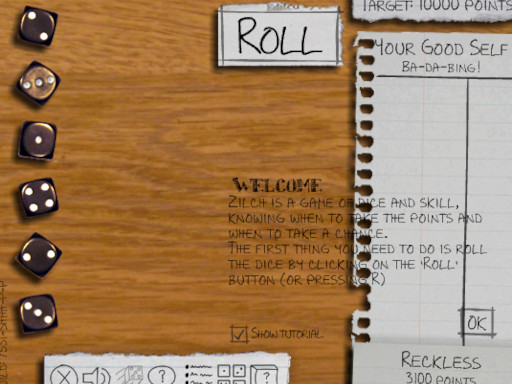 TARGET: 10000 POINTS
ROLL
YOUR GOOD SELF
BA-DA-BING!
WELCOME
ZILCH IS A GAME OF DICE AND SKILL,
KNOWING WHEN TO TAKE THE POINTS AND
WHEN TO TAKE A CHANCE.
THE FIRST THING YOU NEED TO DO IS ROLL
THE DICE BY CLICKING ON THE 'ROLL'
BUTTON (OR PRESSING R)
OK
SHOW TUTORIAL
RECKLESS
3100 POINTS